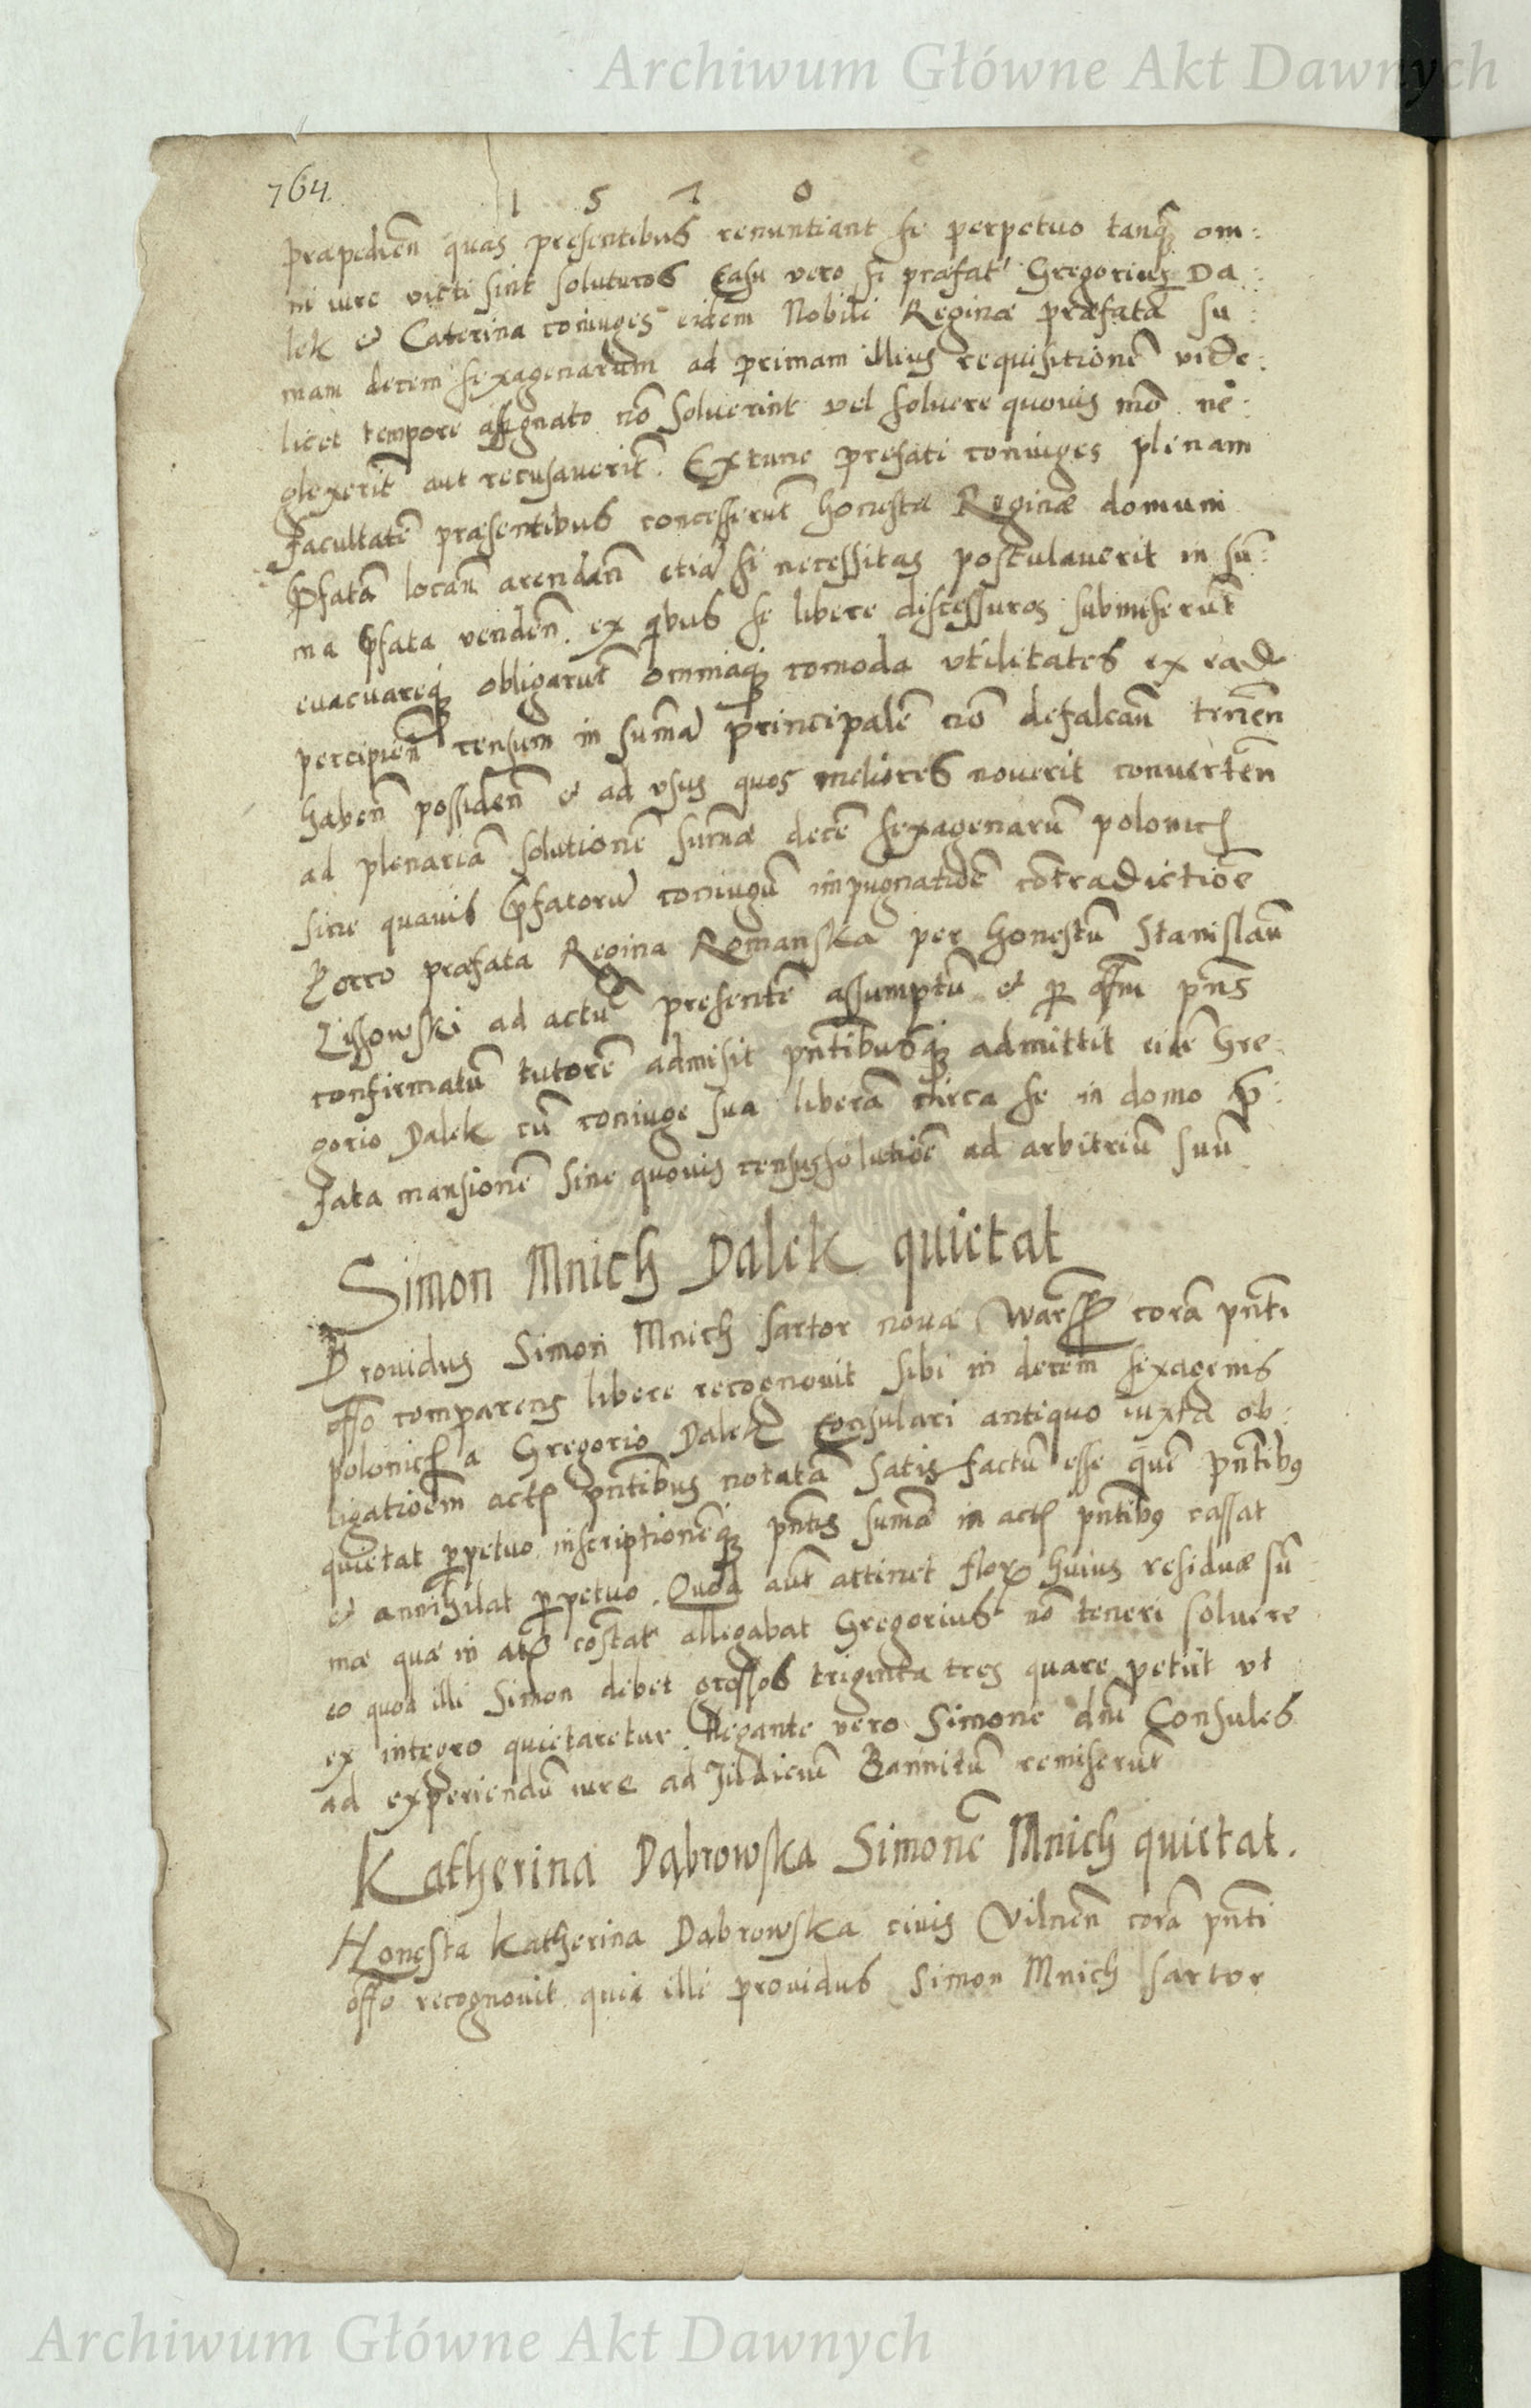 Archiwum Główne Akt Dawnych
764.
1 5 7 0
præpedien̄ quas presentibus renuntiant se perpetuo tanq̄ om:
ni iure victi sint soluturos Casu vero si præfat' Gregorius Da:
lek et Caterina coniuges eidem Nobili Reginæ præfatā su:
mam decem sexagenarum ad primam illius requisitionē vide:
licet tempore assignato nō soluerint vel soluere quouis mō ne:
glexerīt aut recusauerīt. Extunc prefati coniuges plenam
facultatē præsentibus concesserūt honestæ Reginæ domum
p̄fatā locan̄ arendan̄ etiā si necessitas postulauerit in sū:
ma p̄fata venden̄. ex q̄bus se libere discessuros submiserūt
euacuareq; obligarūt omniaq; comoda vtilitates ex ead
percipien̄ censum in sum̄ā principalē nō defalcan̄ tenen̄
haben̄ possiden̄ et ad vsus quos meliores nouerit conuerten̄
ad plenariā solutionē sum̄æ decē sexagenarū polonic̄
sine quauis p̄fatorū coniugū impugnatiōe cōtradictiōe
Porro præfata Regina Romanska per honestū Stanislaū
Lissowski ad actū presentē assumptū et p̄ offm p̄ns
confirmatū tutorē admisit pn̄tibusq; admittit eidē Gre:
gorio Dalek cū coniuge sua liberā circa se in domo p̄:
fata mansionē sine quouis census solutiōe ad arbitriū suū
Simon Mnich Dalek quietat
Prouidus Simon Mnich sartor nouæ Warss̄ corā pn̄ti
offo comparens libere recognouit sibi in decem sexagenis
polonic̄ a Gregorio Dalek Consulari antiquo iuxta ob:
ligatiōem act̄ pn̄tibus notatā satisfactū esse quē pn̄tibq
quietat p̄petuo inscriptionēq; pn̄tis sum̄æ in act̄ pn̄tibq cassat
et annihilat p̄petuo. Quod aūt attinet flor̄ huius residuæ sū
mæ quæ in act̄ cōstat allegabat Gregorius nō teneri soluere
eo quod illi Simon debet grossos triginta tres quare petiit vt
ex integro quietaretur. Negante vero Simone dn̄i Consules
ad experiendū iure ad Iudiciū Bannitū remiserūt
Katherina Dąbrowska Simonē Mnich quietat.
Honesta Katherina Dabrowska ciuis Vilnen̄ corā pn̄ti
offo recognouit quia illi prouidus Simon Mnich sartor
Archiwum Główne Akt Dawnych